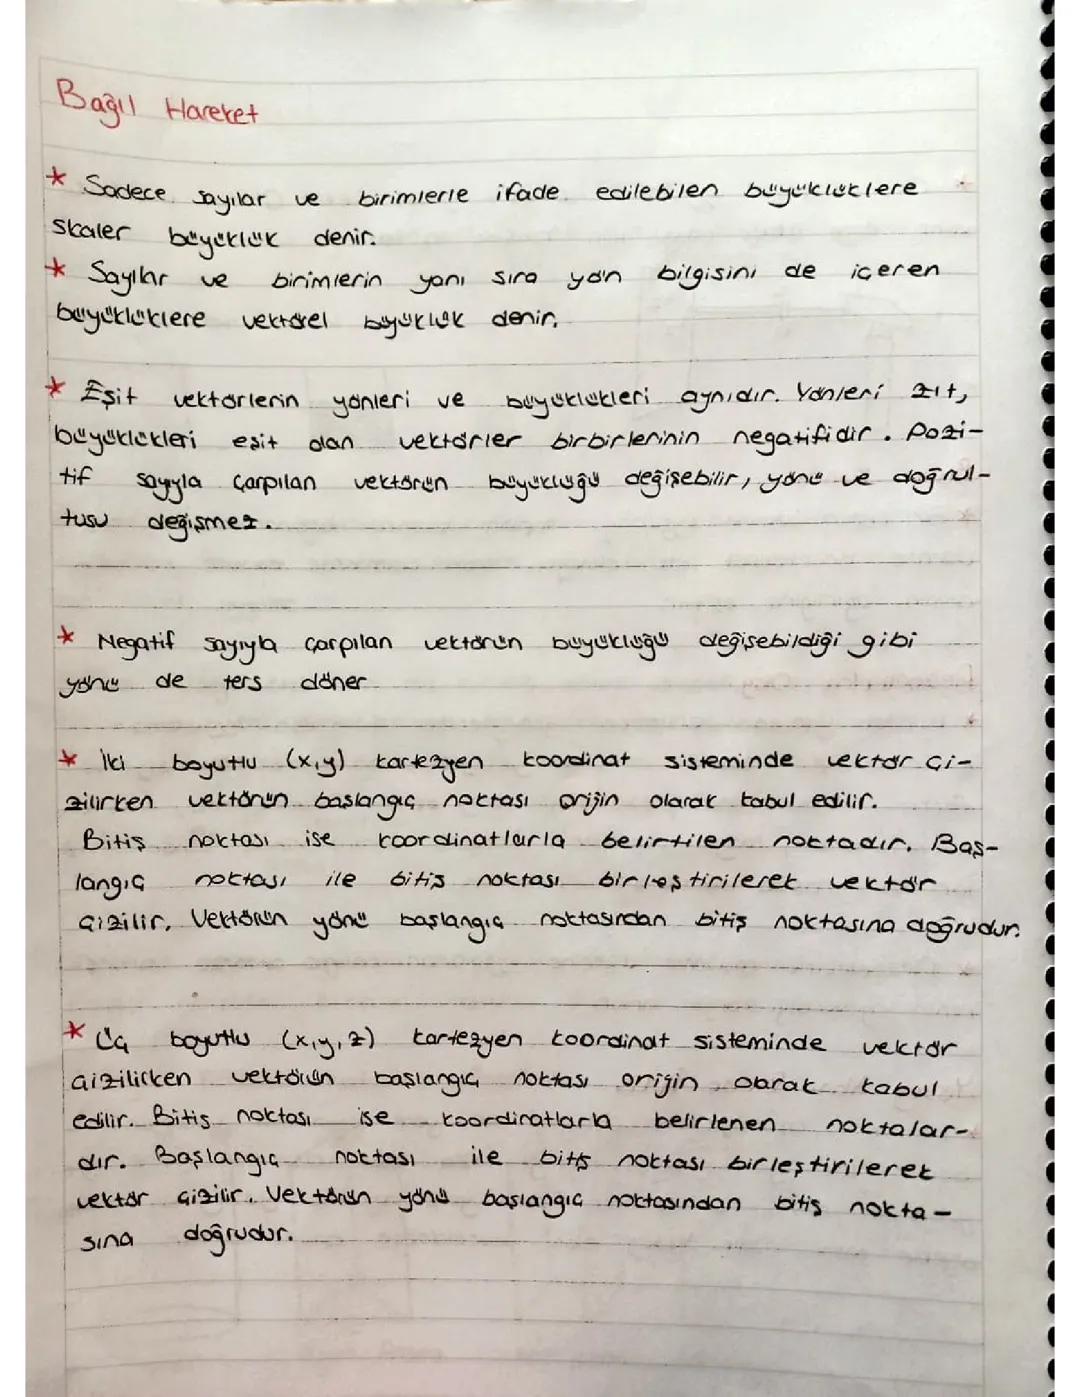 Bağıl Hareket
* Sadece sayılar ve birimlerle ifade edilebilen büyüklüklere
skaler büyüklük denir.
* Sayılar ve birimlerin yanı sıra yön bilgisini de içeren
büyüklüklere vektörel büyüklük denir.
* Eşit vektörlerin yönleri ve büyüklükleri aynıdır. Yönleri zıt,
büyüklükleri eşit olan vektörler birbirlerinin negatifidir. Pozi-
tif sayıyla çarpılan vektörün büyüklüğü değişebilir, yönü ve doğrul-
tusu değişmez.
* Negatif sayıyla çarpılan vektörün büyüklüğü değişebildiği gibi
yönü de ters döner
* İki boyutlu (x,y) kartezyen koordinat sisteminde vektör çi-
zilirken vektörün başlangıç noktası orijin olarak kabul edilir.
Bitiş noktası ise koordinatlarla belirtilen noktadır. Baş-
langıç noktası ile bitiş noktası birleştirilerek vektör
çizilir. Vektörün yönü başlangıç noktasından bitiş noktasına doğrudur.
* Üç boyutlu (x,y,z) kartezyen koordinat sisteminde vektör
çizilirken vektörün başlangıç noktası orijin olarak kabul
edilir. Bitiş noktası ise koordinatlarla belirlenen noktalar-
dır. Başlangıç noktası ile bitiş noktası birleştirilerek
vektör çizilir. Vektörün yönü başlangıç noktasından bitiş nokta-
sına doğrudur.